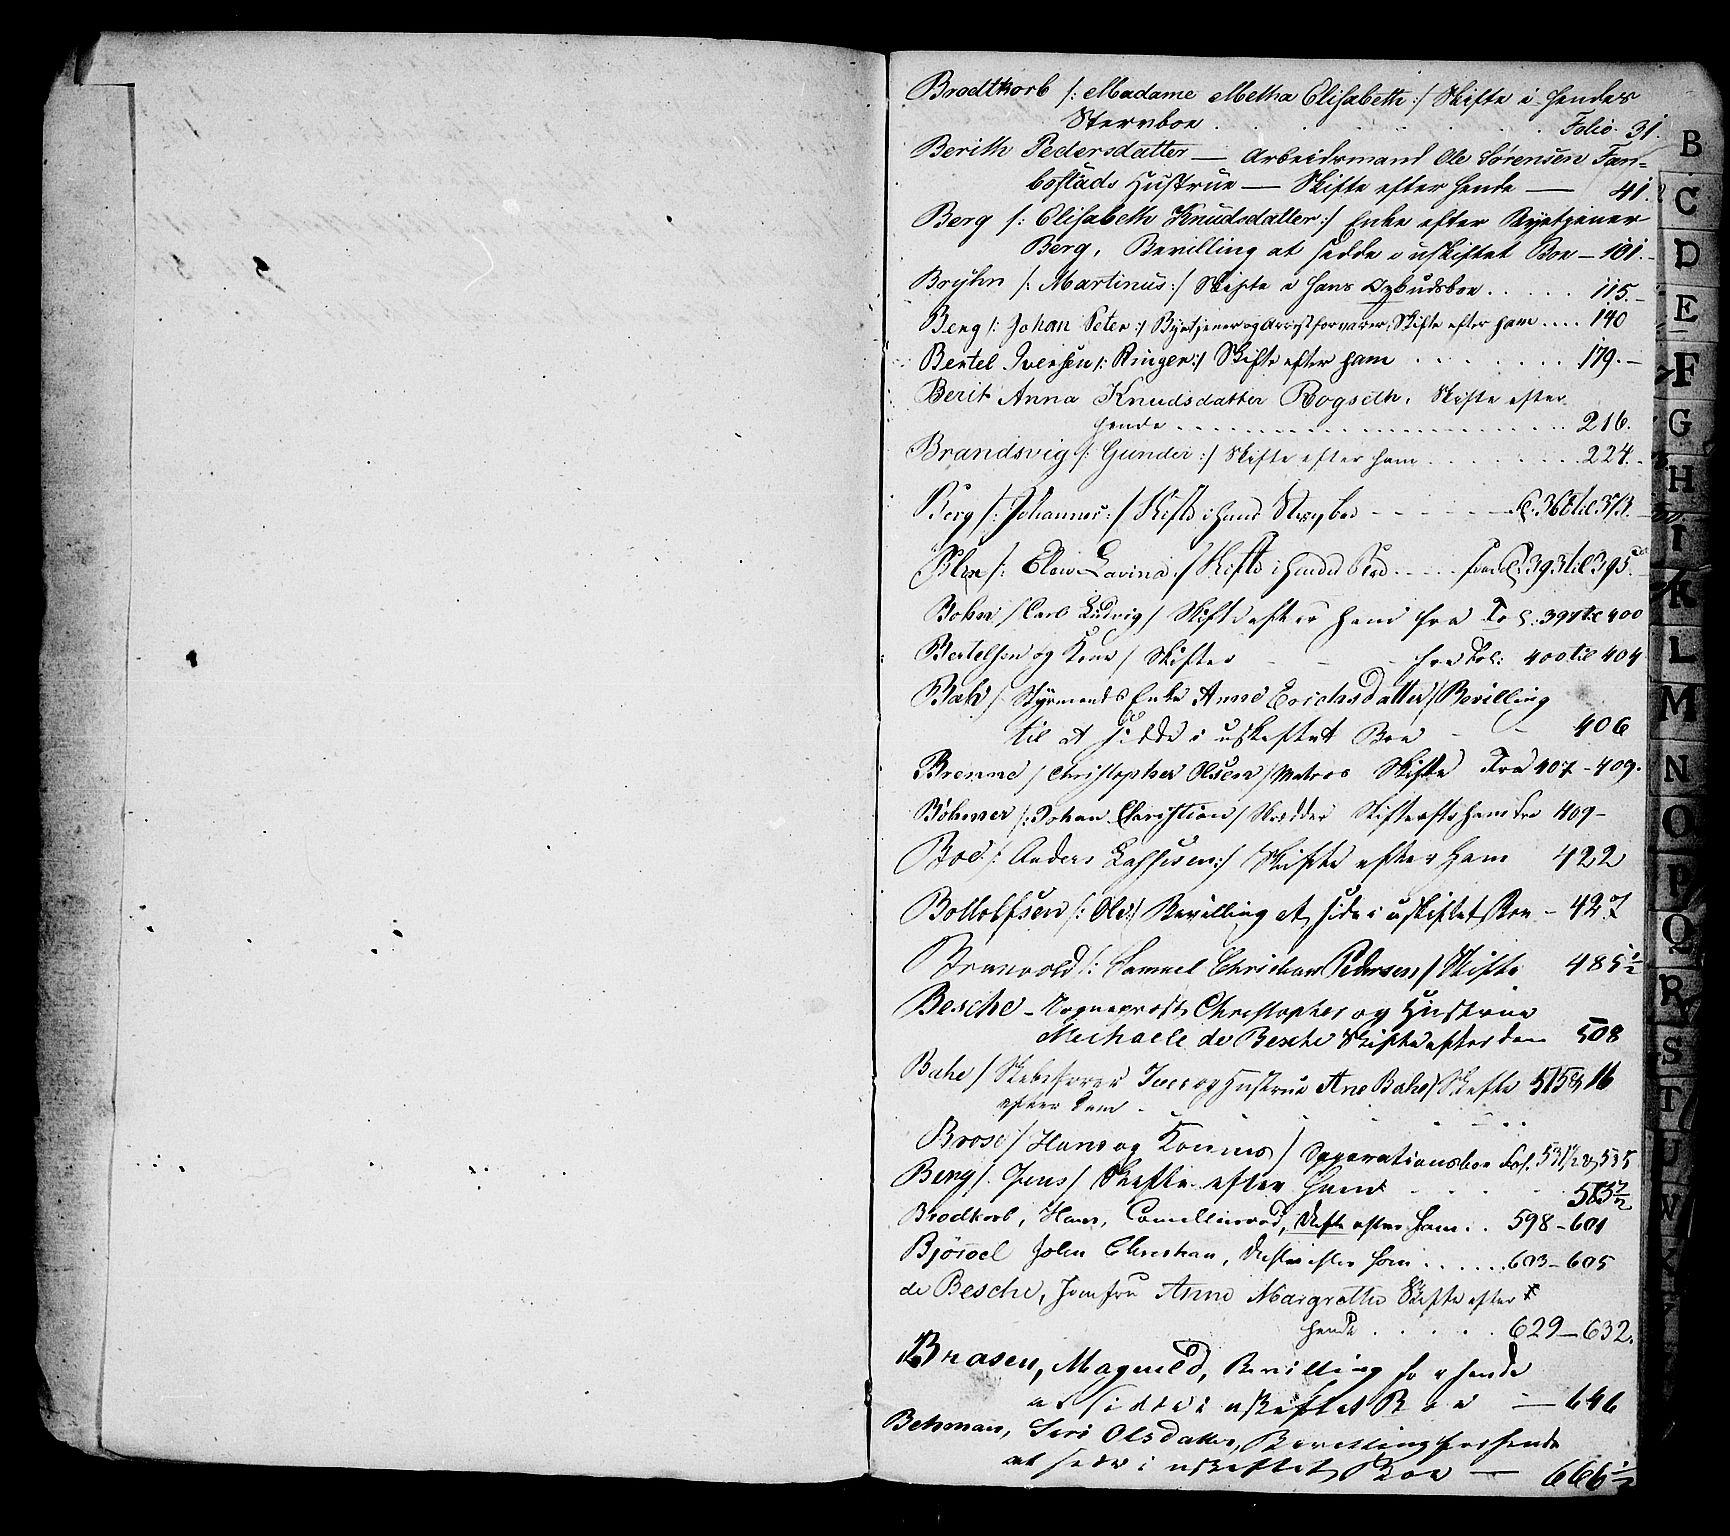 Brodtkorb /: Madame Metha Elisabeth :/ Skifte i hendes
Stervboe . . . . . . . Folio. 31.
Berith Pedersdatter — Arbeidsmand Ole Sørensen Tan-
bostads Hustrue — Skifte efter hende — 41.
Berg /: Elisabeth Knudsdatter :/ Enke efter Byetjener
Berg, Bevilling at sidde i uskiftet Boe — 101.
Bryhn /: Martinus :/ Skifte i hans Opbudsboe . . . . . 115.
Berg /: Johan Peter :/ Byetjener og Arrestforvarer, Skifte efter ham .... 140
Bertel Iversen /: Ringer :/ Skifte efter ham . . . . . . 179.
Berit Anna Knudsdatter Rogseth, Skifte efter
hende . . . . . . . . . . . . 216.
Brandsvig /: Gunder :/ Skifte efter ham . . . . . . . 224.
Berg /: Johannes :/ Skifte i hans Stervboe - - - - - 360 til 373.
/: Elen Lavina :/ Skifte i hendes Boe . . . . fra Fol. 393 til 395.
Bohn / Carl Ludvig / Skifte efter ham fra Fol. 397 til 400
Bertelsen og Kone / Skifter - - - fra Fol: 400 til 404
Bah / Styrmands Enke Anne Erichsdatter / Bevilling
til at sidde i uskiftet Boe - - 406
Brenne / Christopher Olsen / Matros Skifte Fra 407 - 409.
Böhmer /: Johan Christian / Skrædder Skifte efter ham fra 409 -
Boe /: Anders Lassesen :/ Skifte efter ham 422
Bottolfsen /: Ole :/ Bevilling at side i uskiftet Boe - 427
/: Samuel Christian Pedersen / Skifte 485½
Besche - Sogneprest Christopher og Hustrue
Michaele de Besche Skifte efter dem 508
Bahe / Skibsfører Iver og Hustrue Ane Bahe / Skifte 515 & 16
efter dem -
Brose / Hans og Kones / Separationsboe Fol. 531½ & 535
Berg /: Jens / Skifte efter ham . . . . 583½
Brodkorb, Hans, Skifte efter ham . . 598 - 601
John Christian, Skifte efter ham . . . . . . 603 - 605
de Besche, Jomfru Anne Margrethe Skifte efter
hende . . . . . 629 - 632.
Brasen, Magnild, Bevilling for hende
at sidde i uskiftet Boe — 646
Behman, Siri Olsdatter, Bevilling for hende
at sede i uskiftet Boe — 666½
B
C
D
E
F
G
H
I
K
L
M
N
O
P
Q
R
S
T
U
W